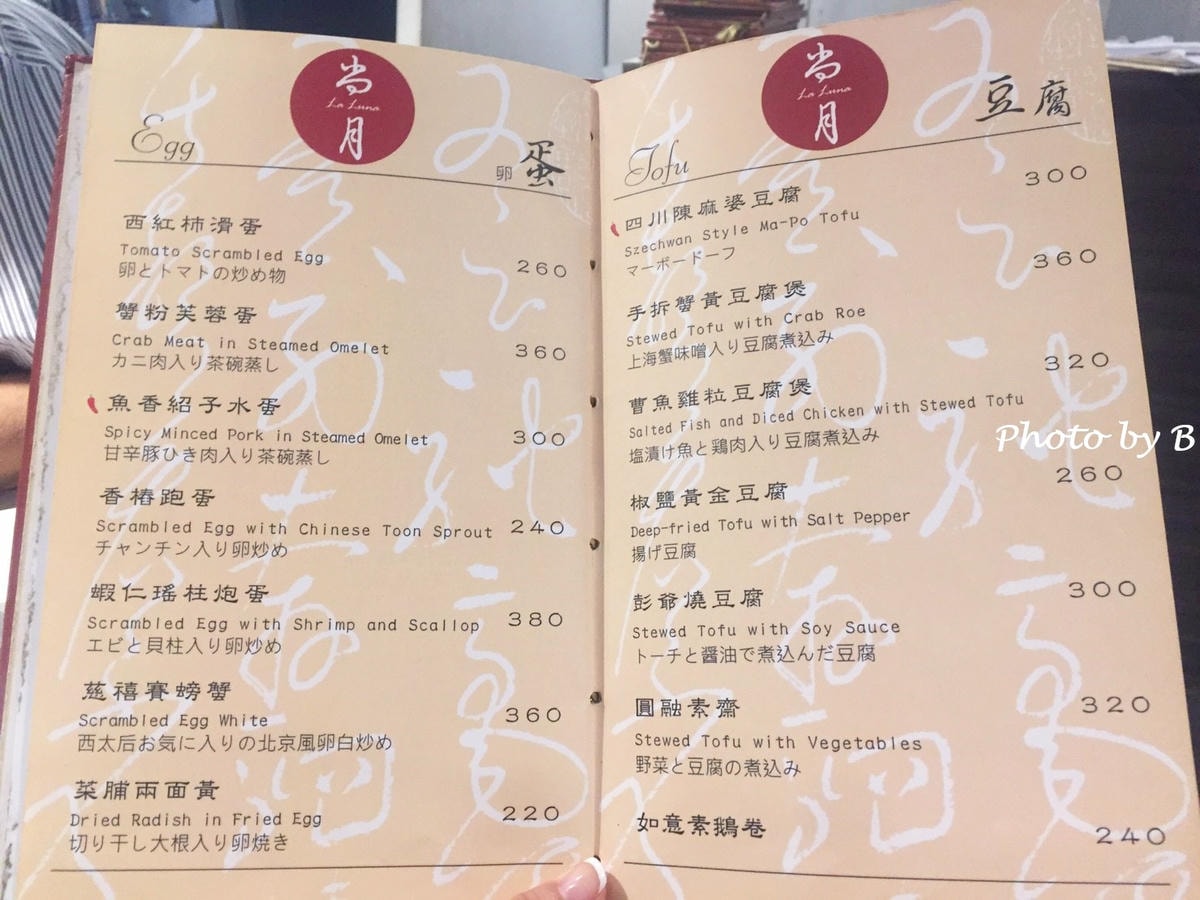 尚
La Luna
月
Egg
卵 蛋
西紅柿滑蛋
Tomato Scrambled Egg 260
卵とトマトの炒め物
蟹粉芙蓉蛋
Crab Meat in Steamed Omelet 360
カニ肉入り茶碗蒸し
魚香紹子水蛋
Spicy Minced Pork in Steamed Omelet 300
甘辛豚ひき肉入り茶碗蒸し
香椿跑蛋
Scrambled Egg with Chinese Toon Sprout 240
チャンチン入り卵炒め
蝦仁瑤柱炮蛋
Scrambled Egg with Shrimp and Scallop 380
エビと貝柱入り卵炒め
慈禧賽螃蟹
Scrambled Egg White 360
西太后お気に入りの北京風卵白炒め
菜脯兩面黃
Dried Radish in Fried Egg 220
切り干し大根入り卵焼き
尚
La Luna
月
Tofu
豆腐
四川陳麻婆豆腐 300
Szechwan Style Ma-Po Tofu
マーボードーフ
手拆蟹黃豆腐煲 360
Stewed Tofu with Crab Roe
上海蟹味噌入り豆腐煮込み
曹魚雞粒豆腐煲 320
Salted Fish and Diced Chicken with Stewed Tofu
塩漬け魚と鶏肉入り豆腐煮込み
椒鹽黃金豆腐 260
Deep-fried Tofu with Salt Pepper
揚げ豆腐
彭爺燒豆腐 300
Stewed Tofu with Soy Sauce
トーチと醤油で煮込んだ豆腐
圓融素齋 320
Stewed Tofu with Vegetables
野菜と豆腐の煮込み
如意素鵝卷 240
Photo by B